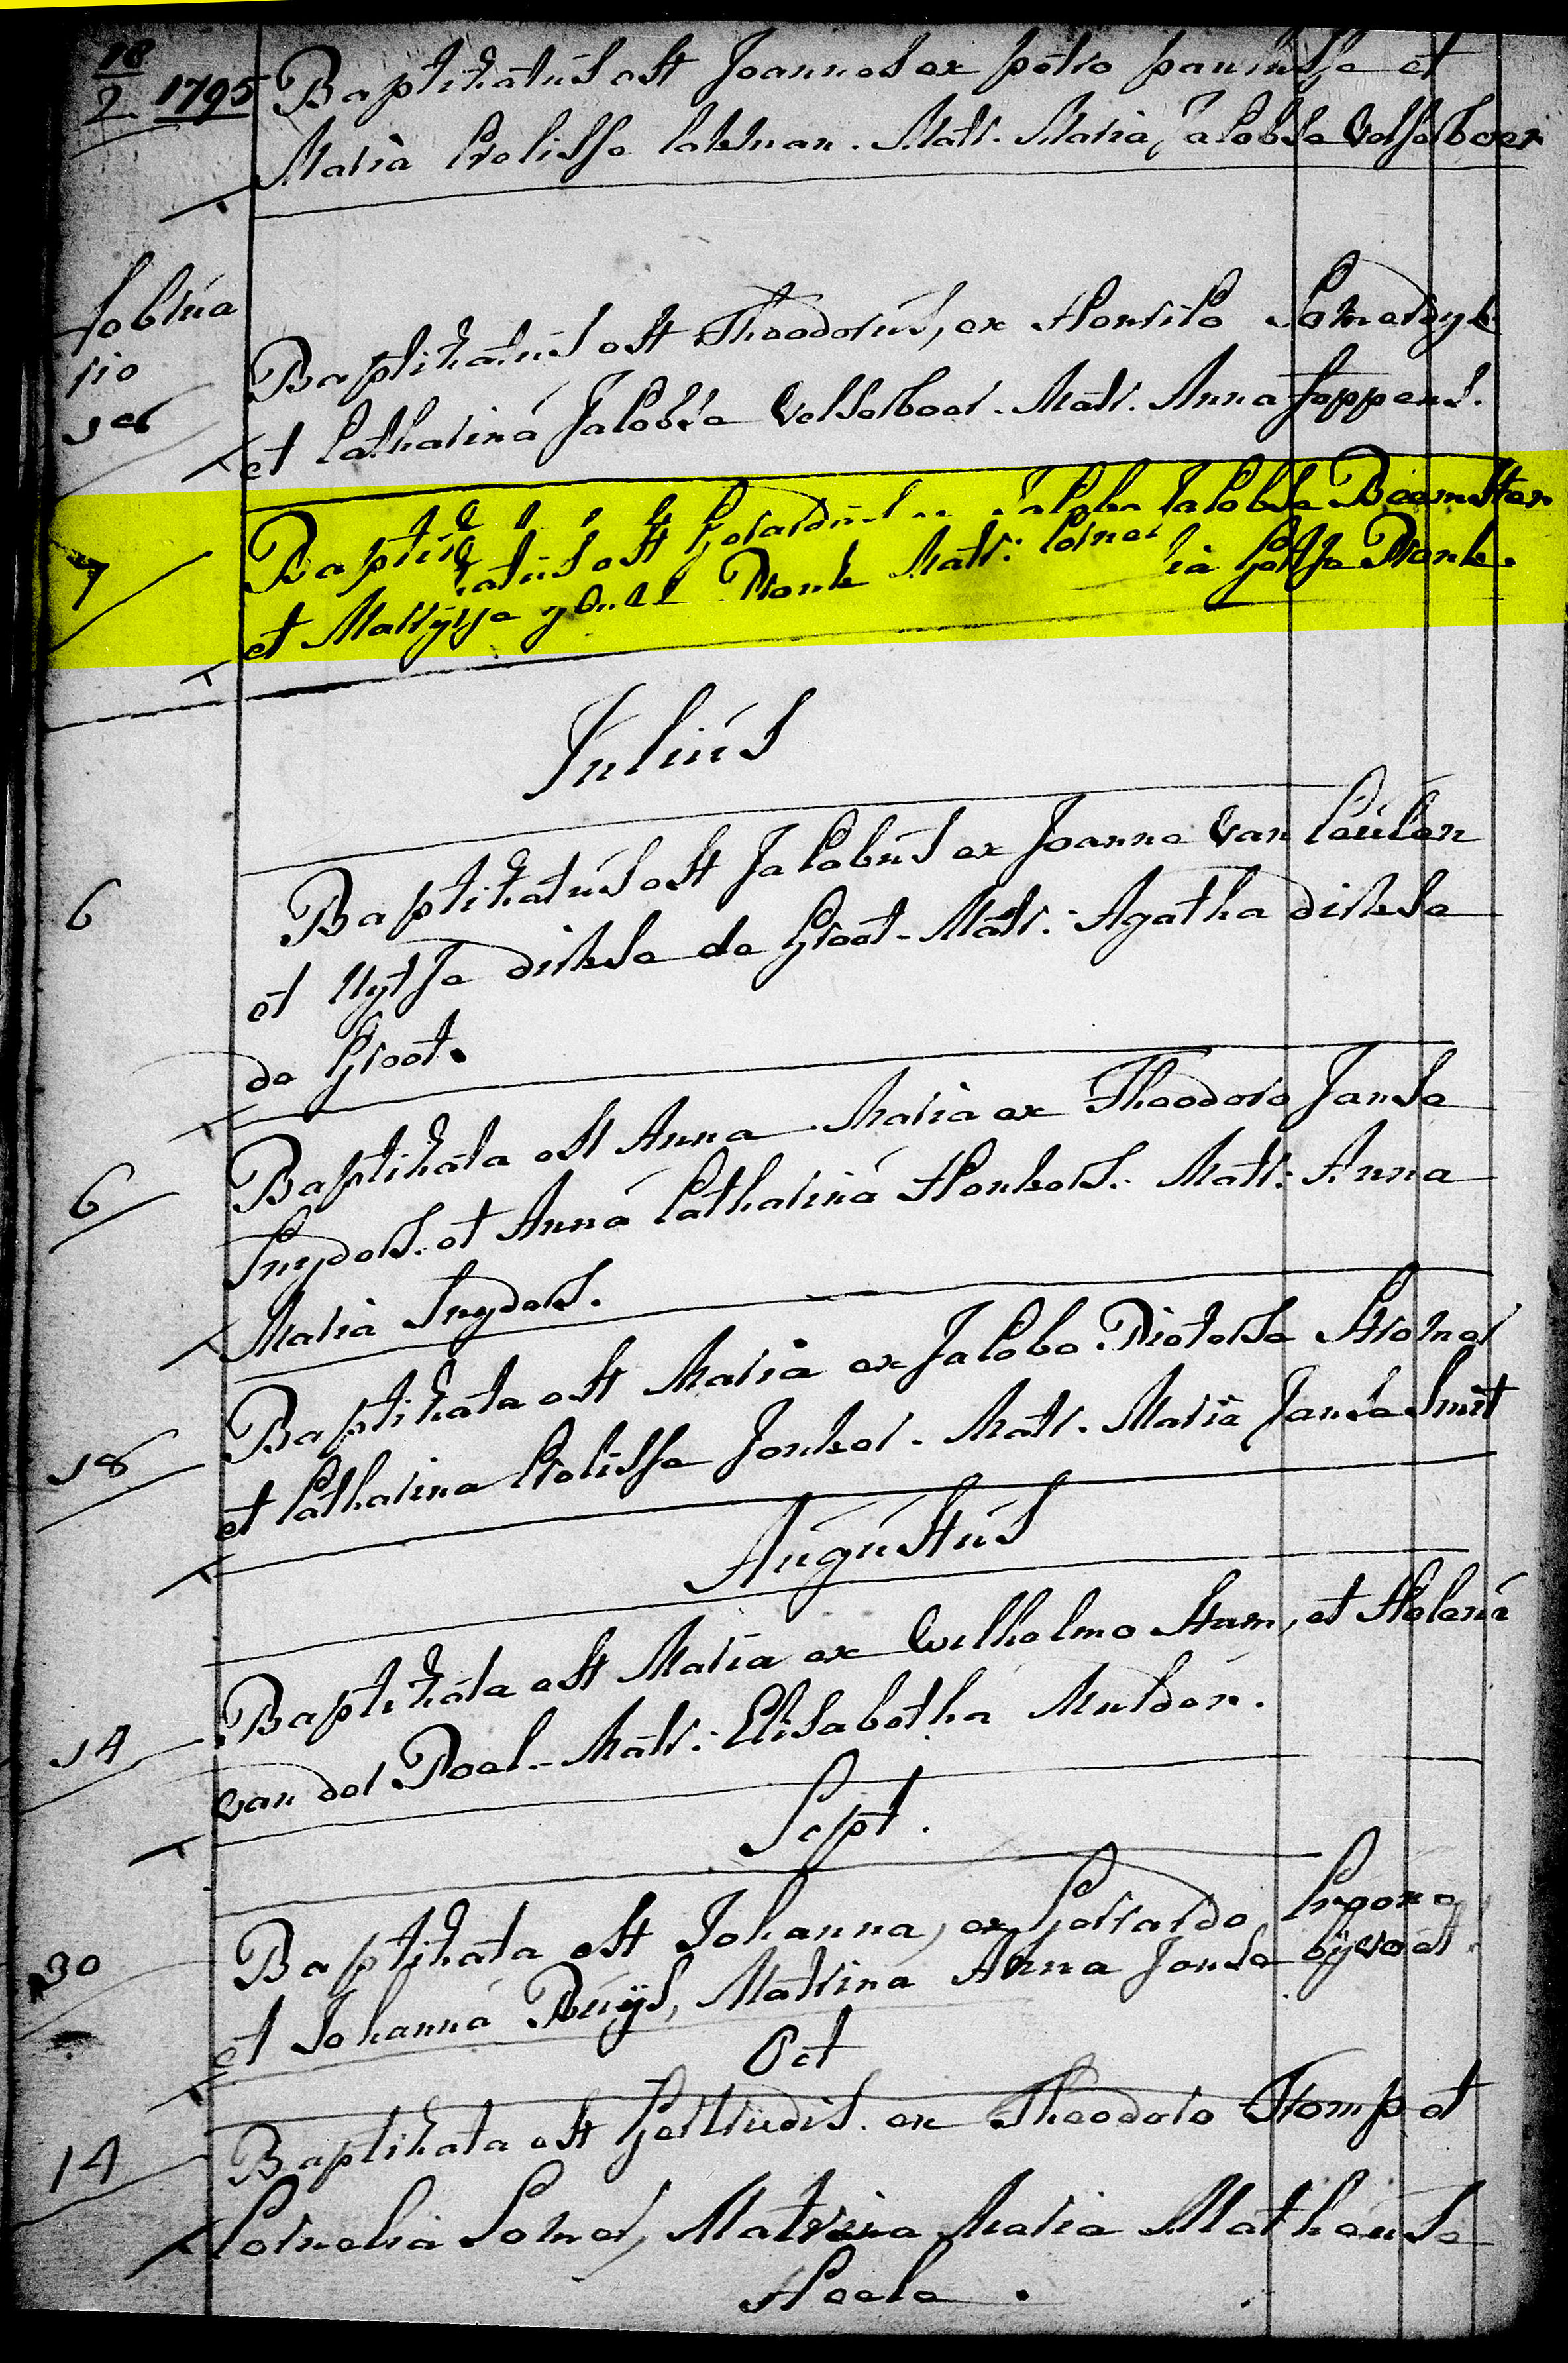 18
2 1795 Baptizatus est Joannes ex petro paulusse et
Maria Crelisse Matr. Maria Jacobse Vesselboer
februa
rio
18
Baptizatus est Theodorus, ex Henrico Somerdyk
et Catharina Jacobse Vesselboer. Matr. Anna Joppens.
7 Baptizatus est Gerardus ex Jacobo Jacobse Beemster
et Marijtje Pronk Matr: Cornelia Pronk.
Julius
6 Baptizatus est Jacobus ex Joanne Van Ceulen
et Dirkse de Groot. Matr: Agatha Dirkse
de Groot.
6 Baptizata est Anna Maria ex Theodoro Janse
Snyders. et Anna Catharina Honkers. Matr: Anna
Maria Snyders.
18 Baptizata est Maria ex Jacobo Pieterse
et Catharina Crelisse Jonker. Matr. Maria Janse Smit
Augustus
14 Baptizata est Maria ex Wilhelmo Stam, et Helena
van der Poel. Matr: Elisabetha Mulder.
Sept.
30 Baptizata est Johanna, ex Gerrardo
et Johanna Ruijs, Matrina Anna Janse bijvoet.
Oct
14 Baptizata est Gertrudis. ex Theodoro Tromp et
Cornelia Matrina Maria Matheuse